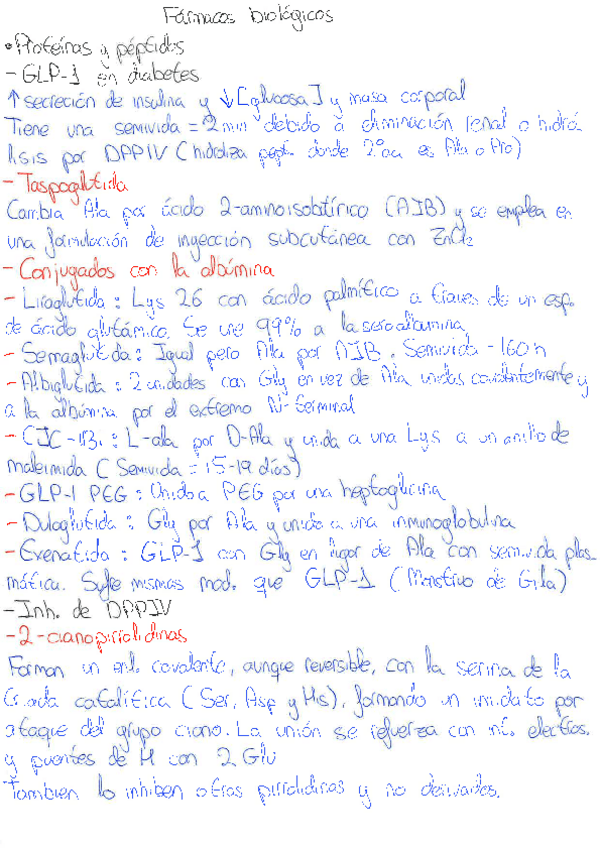 Fármacos biológicos
• Proteínas y péptidos
- GLP-1 en diabetes
↑ secreción de insulina y ↓ [glucosa] y masa corporal
Tiene una semivida = 2 min debido a eliminación renal o hidró
lisis por DPPIV (hidroliza pept. donde 2º aa es Ala o Pro)
- Taspoglutida
Cambia Ala por ácido 2-aminoisobutírico (AIB) y se emplea en
una formulación de inyección subcutánea con ZnCl2
- Conjugados con la albúmina
- Liraglutida: Lys 26 con ácido palmítico a traves de un esp.
de ácido glutámico. Se une 99% a la seroalbumina
- Semaglutida: Igual pero Ala por AIB. Semivida - 160 h
- Albiglutida: 2 unidades con Gly en vez de Ala unidas covalentemente y
a la albúmina por el extremo N-terminal
- CJC-1131: L-ala por D-Ala y unida a una Lys a un anillo de
maleimida (Semivida = 15-19 días)
- GLP-1 PEG: Unido a PEG por una heptaglicina
- Dulaglutida: Gly por Ala y unido a una inmunoglobulina
- Exenatida: GLP-1 con Gly en lugar de Ala con semivida plas
mática. Sufre mismas mod. que GLP-1 (Monstruo de Gila)
- Inh. de DPPIV
- 2-cianopirrolidinas
Forman un enl. covalente, aunque reversible, con la serina de la
triada catalítica (Ser, Asp y His), formando un imidato por
ataque del grupo ciano. La unión se refuerza con int. electros.
y puentes de H con 2 Glu
Tambien lo inhiben otras pirrolidinas y no derivados.